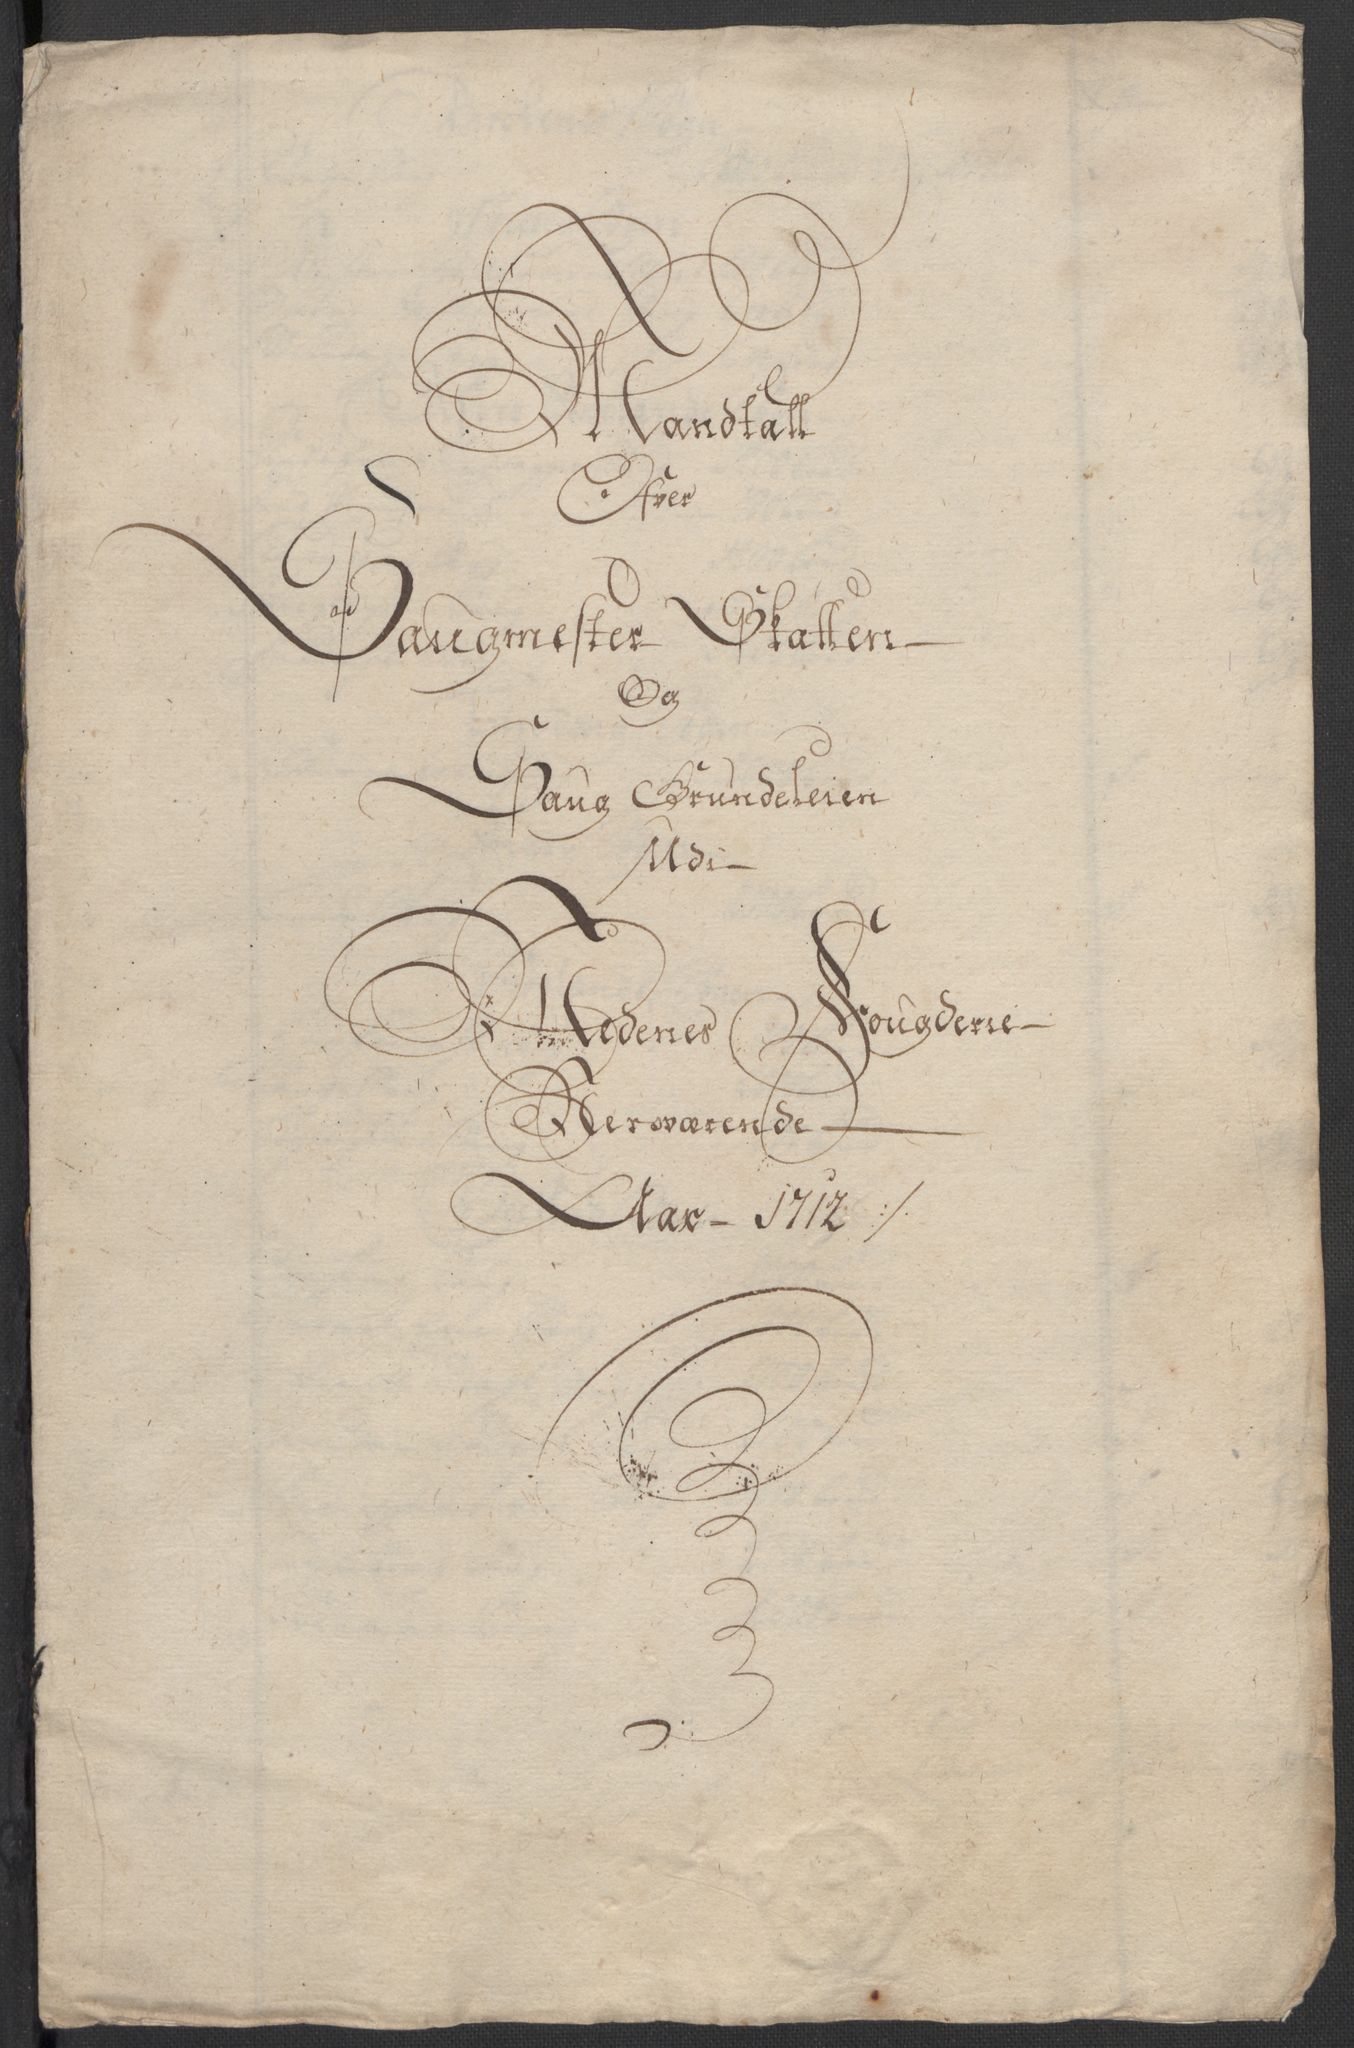 Mandtall
Ofver
Saugmester Skatten
Og
Saug Grundeleien
Udi
Nedenes Fougderie
Nerværende
Aar 1712 /: